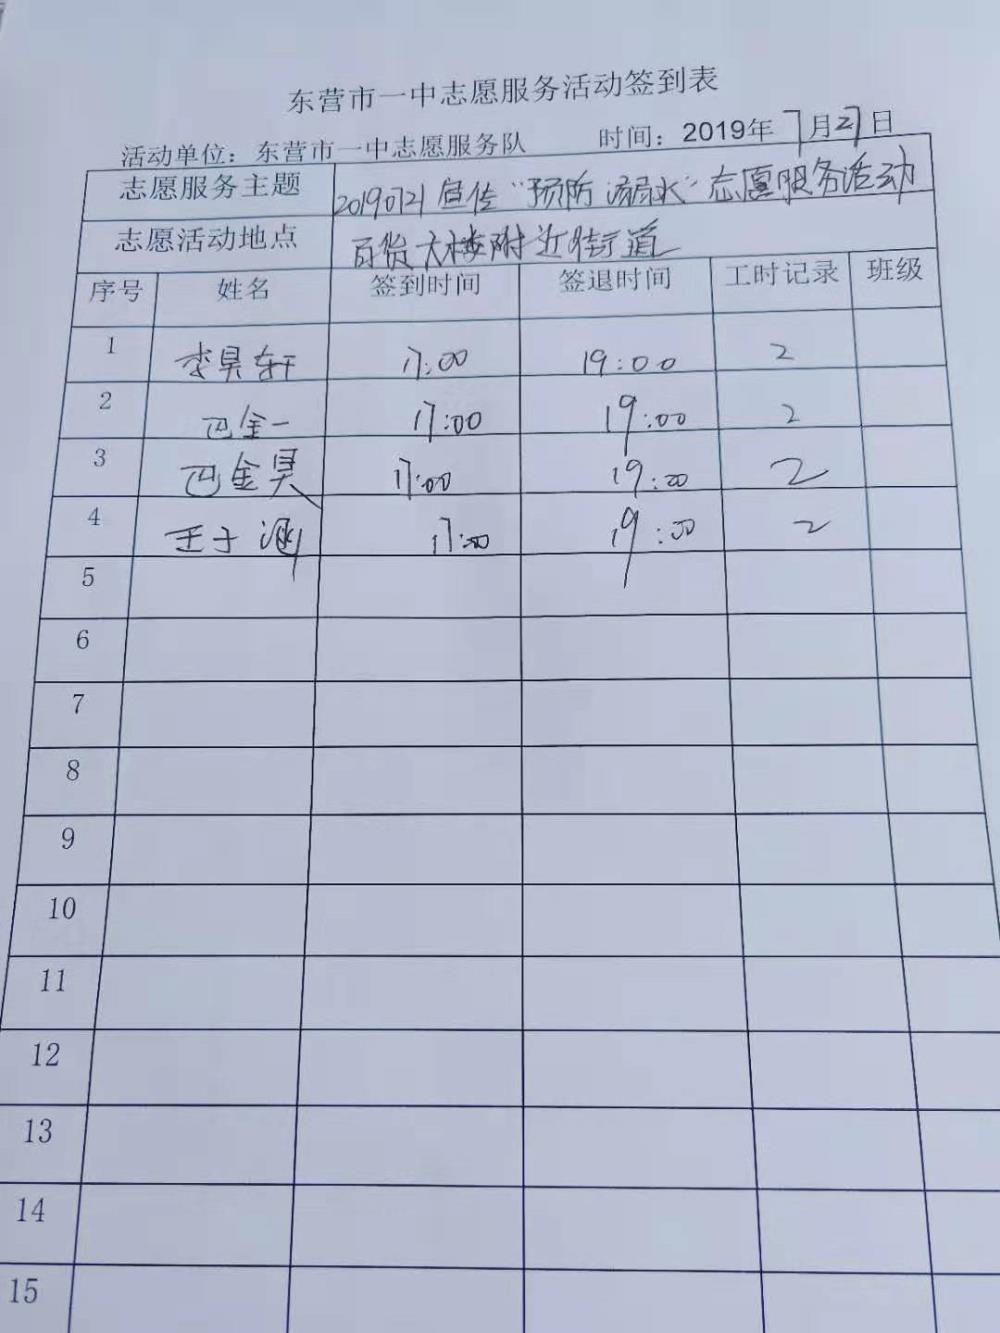 东营市一中志愿服务活动签到表
活动单位：东营市一中志愿服务队 时间：2019年7月21日
志愿服务主题 20190721宣传“预防溺水”志愿服务活动
志愿活动地点 百货大楼附近街道
序号 姓名 签到时间 签退时间 工时记录 班级
1 李昊轩 17:00 19:00 2
2 巴金一 17:00 19:00 2
3 巴金昊 17:00 19:00 2
4 王子涵 17:00 19:00 2
5
6
7
8
9
10
11
12
13
14
15